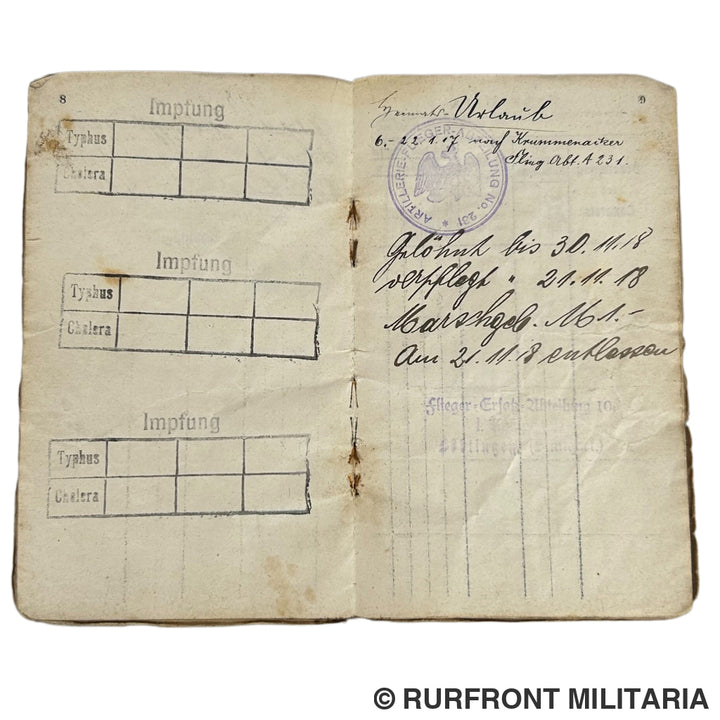 8
Impfung
Typhus
Cholera
Impfung
Typhus
Cholera
Impfung
Typhus
Cholera
9
Heimats-Urlaub
6.-22.1.17 nach Krummenacker
Flieg. Abt. A 231.
ARTILLERIE-FLIEGER-ABTEILUNG No. 231 *
Gelöhnt bis 30.11.18
verpflegt " 21.11.18
Marschgeb. M 1.-
Am 21.11.18 entlassen
Flieger-Ersatz-Abteilung 10
© RURFRONT MILITARIA